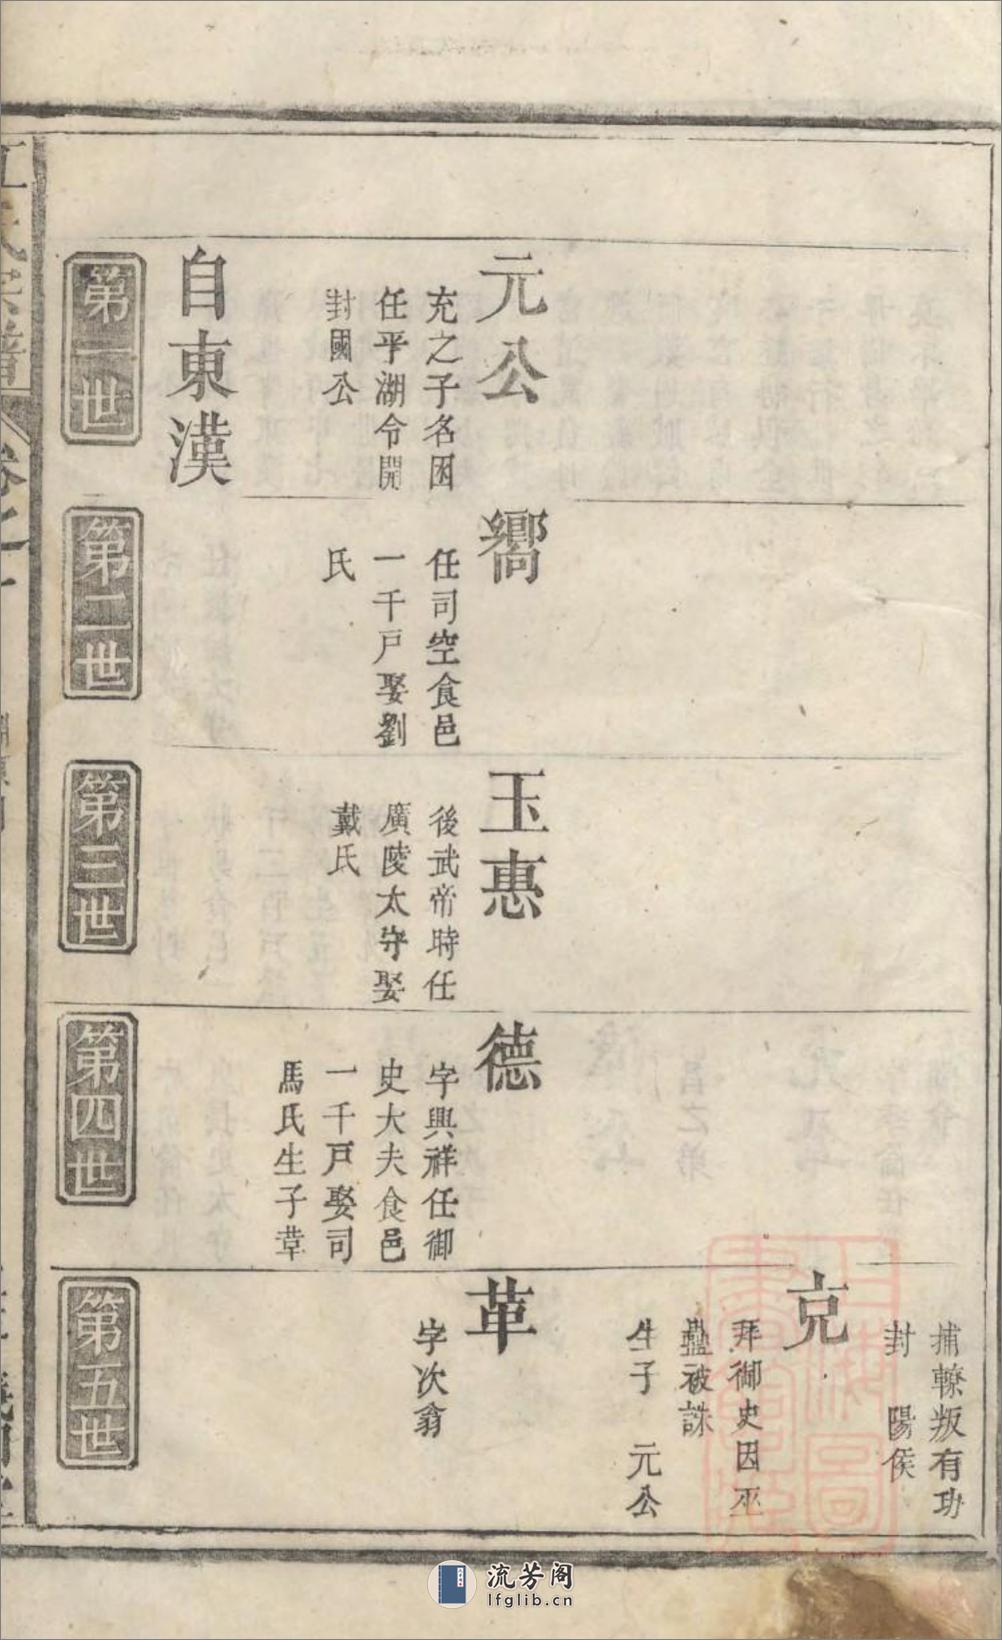 捕轑叛有功
封　陽侯
克
拜御史因巫
蠱被誅
生子　元公
自東漢
第一世
元公
充之子名因
任平湖令開
封國公
第二世
嚮
任司空食邑
一千戶娶劉
氏
第三世
玉惠
後武帝時任
廣陵太守娶
戴氏
第四世
德
字興祥任御
史大夫食邑
一千戶娶司
馬氏生子革
第五世
革
字次翁
江氏宗譜
卷之一
流芳阁
lfglib.cn